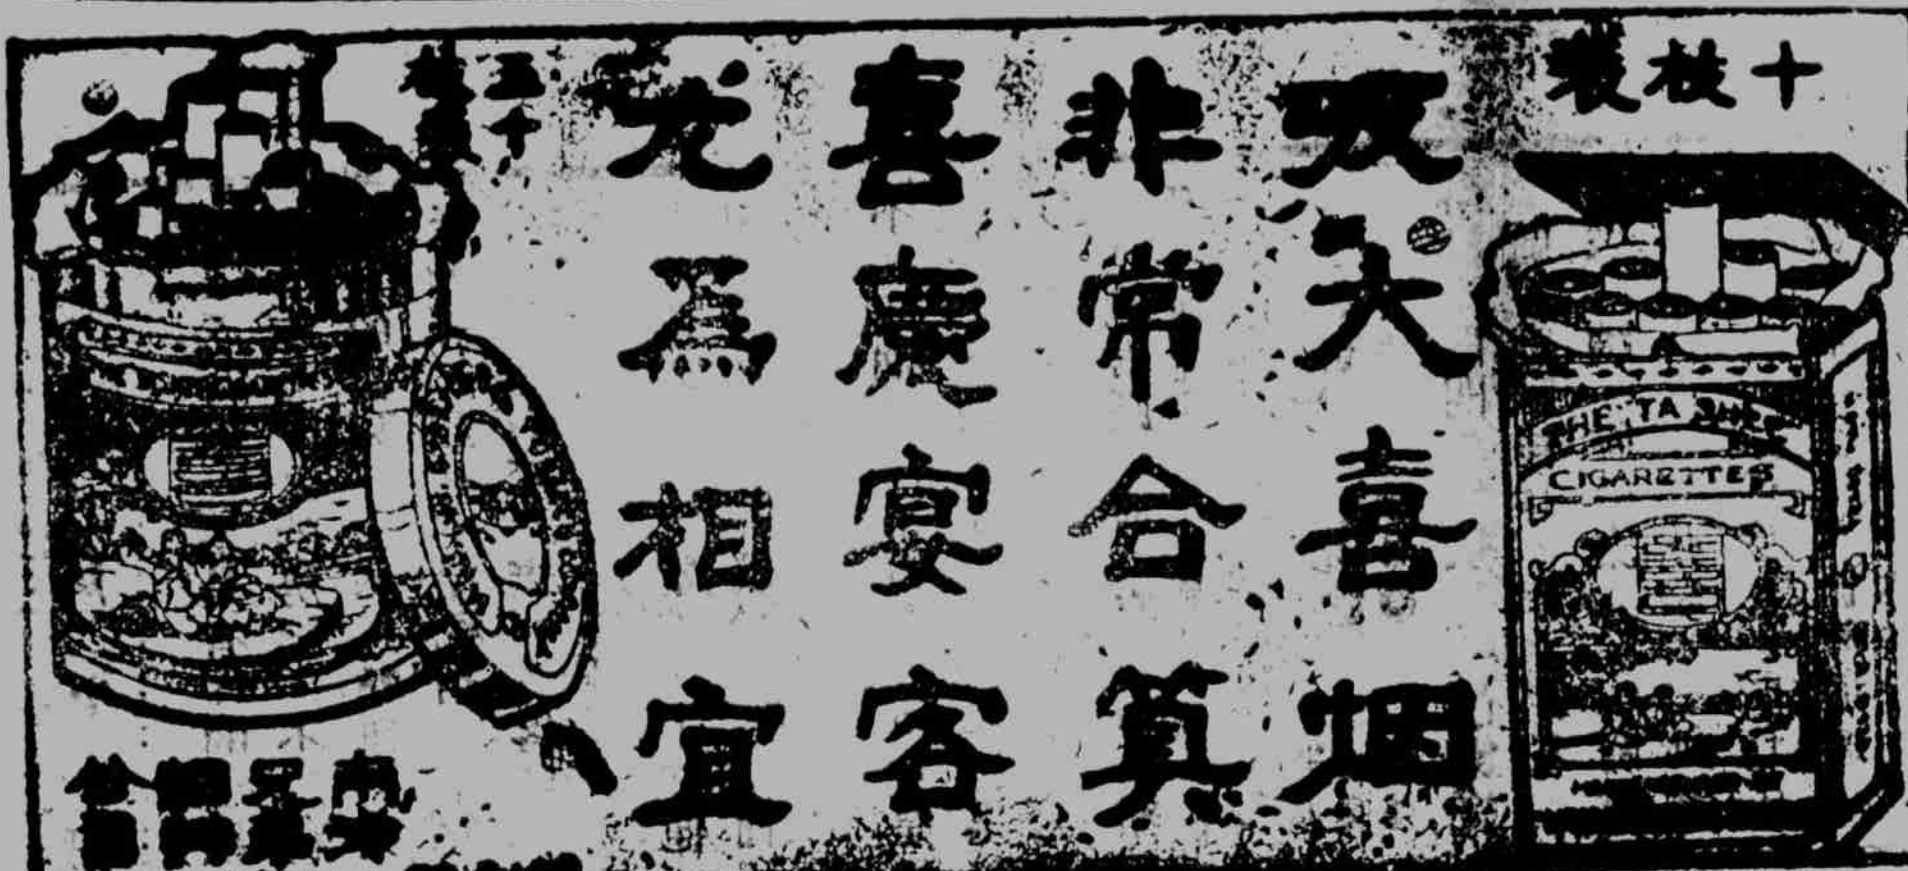 十枝裝
吸大喜烟
非常合算
喜慶宴客
尤為相宜
五十
枝裝
南洋
兄弟
烟草
公司
THE TA SHEE
CIGARETTES